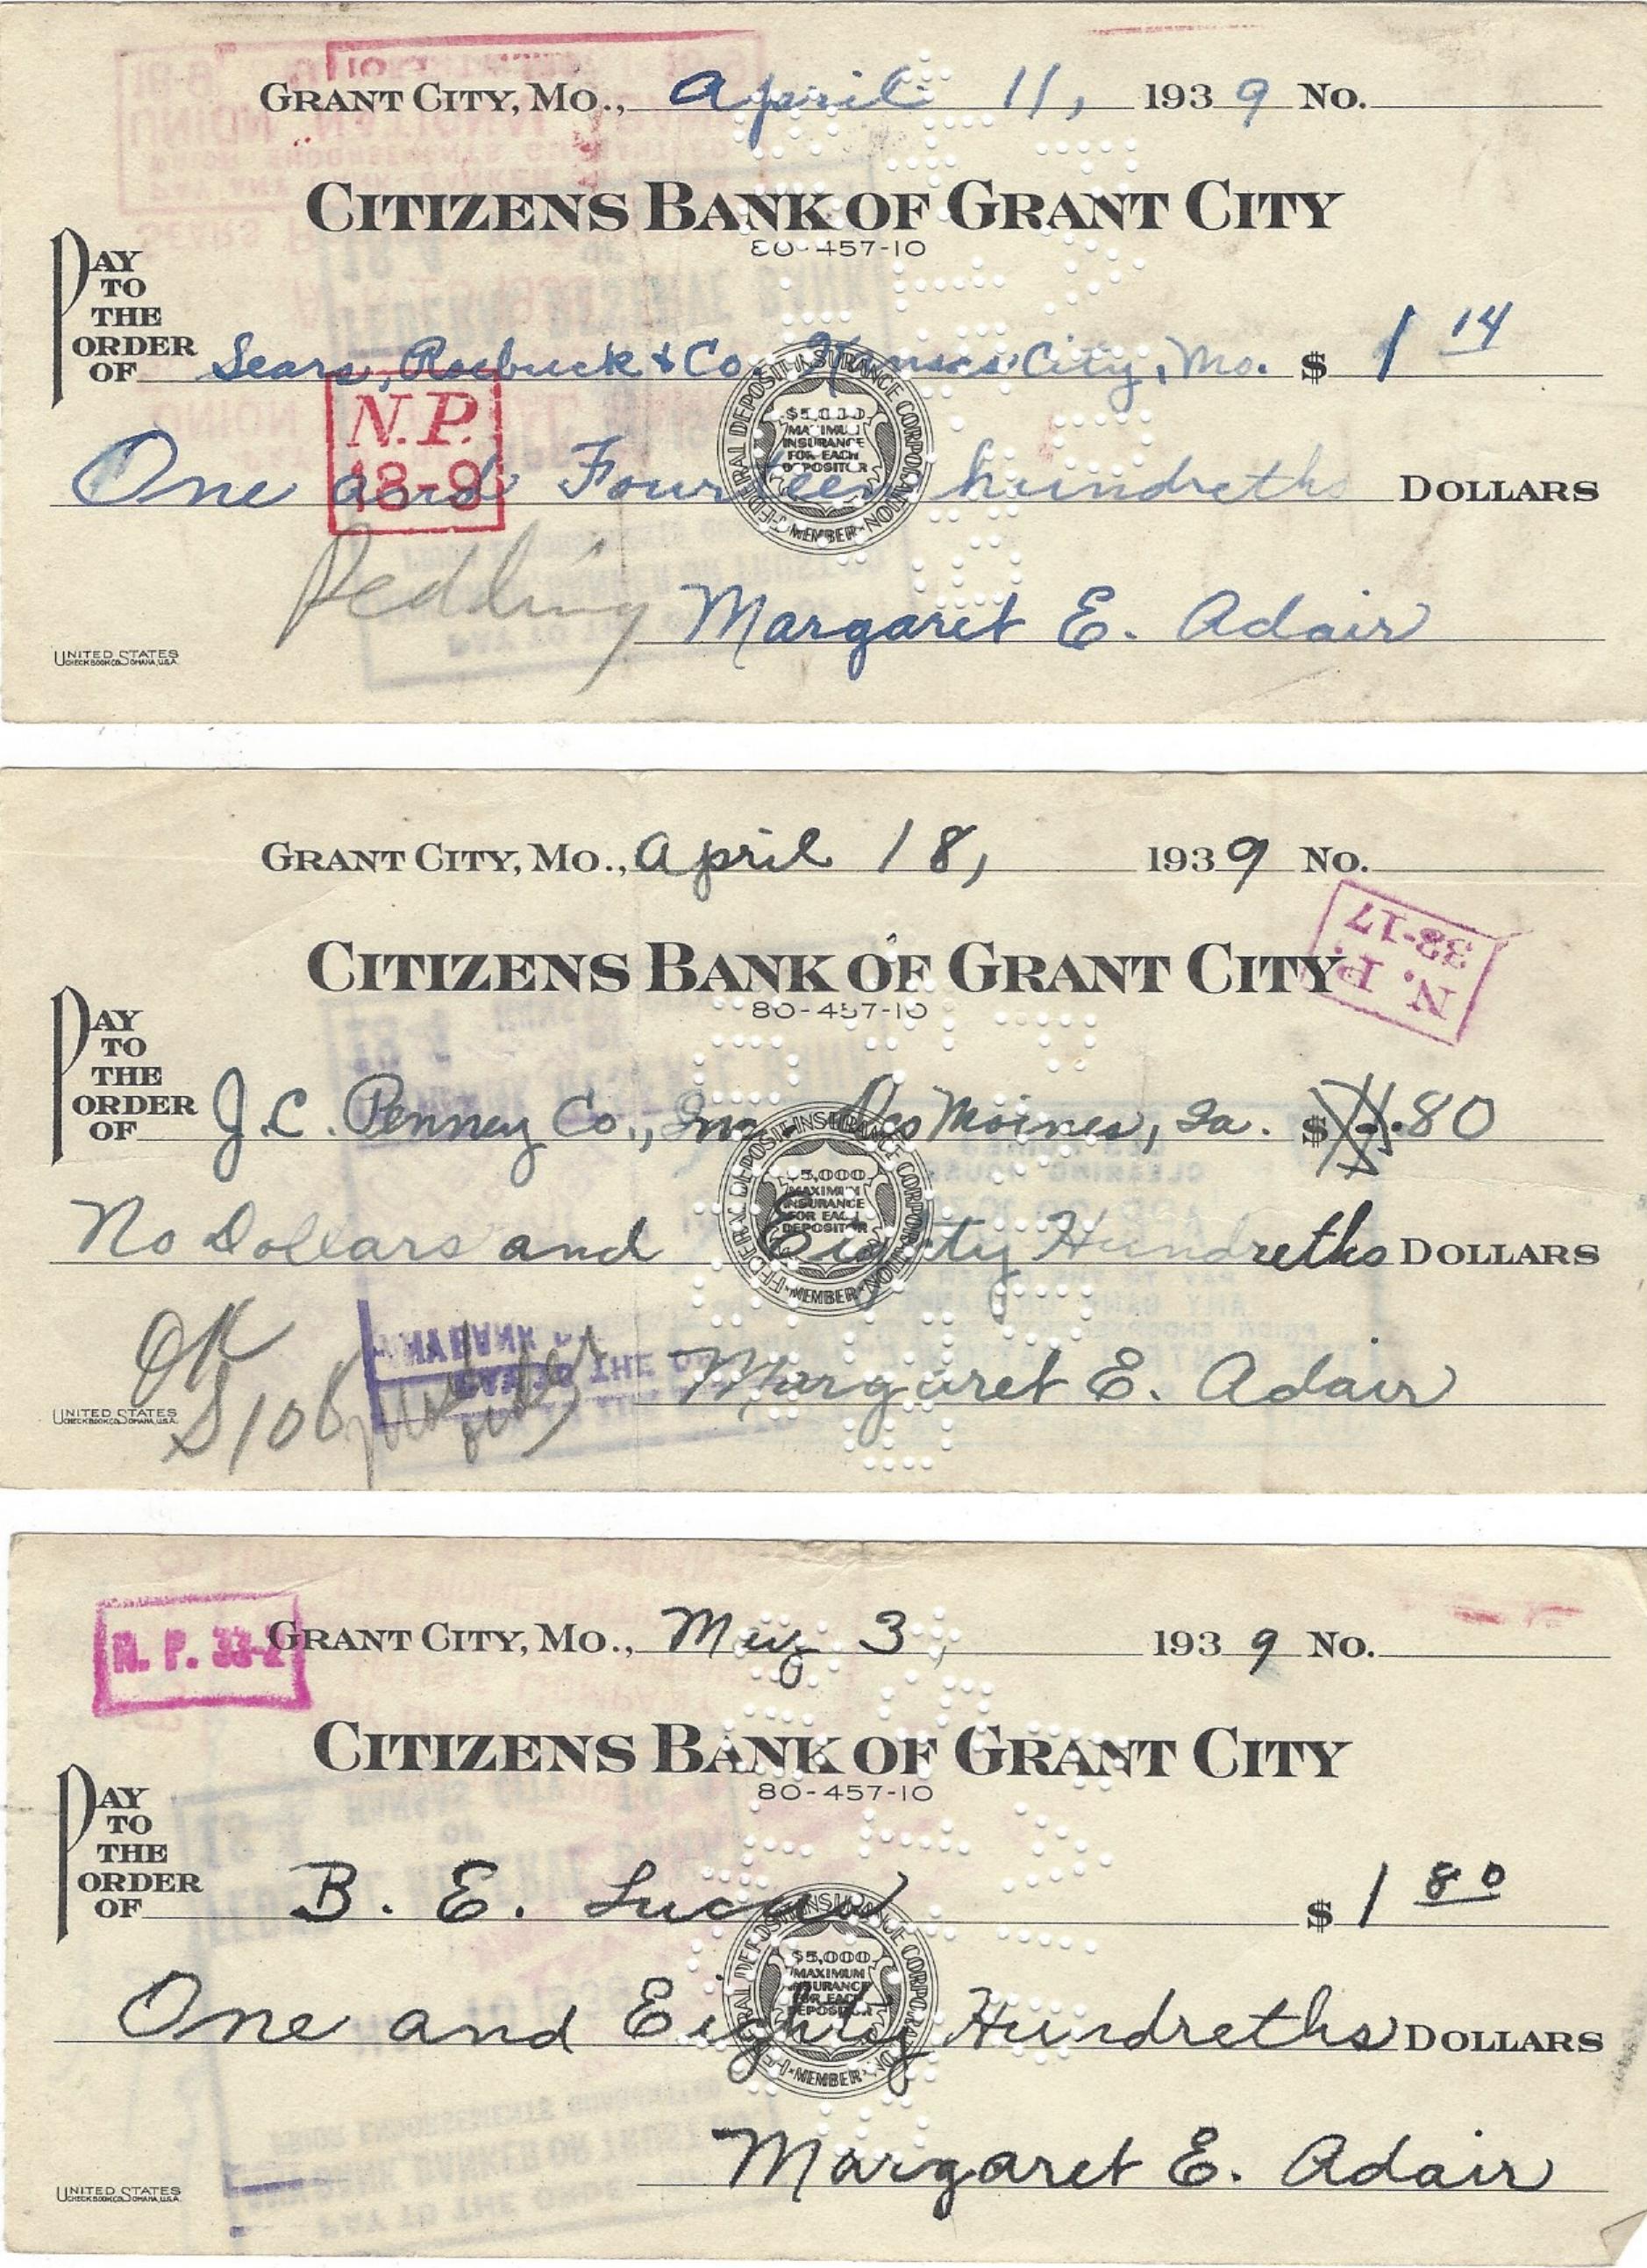 GRANT CITY, MO., April 11, 1939 No.
CITIZENS BANK OF GRANT CITY
80-457-10
PAY TO THE ORDER OF Sears, Roebuck & Co. Kansas City, Mo. $ 1 14
N.P.
18-9
FEDERAL DEPOSIT INSURANCE CORPORATION
$5,000
MAXIMUM
INSURANCE
FOR EACH
DEPOSITOR
MEMBER
One and Fourteen hundreths DOLLARS
Margaret E. Adair
UNITED STATES
CHECK BOOK CO. OMAHA, U.S.A.
GRANT CITY, MO., April 18, 1939 No.
N. P.
33-17
CITIZENS BANK OF GRANT CITY
80-457-10
PAY TO THE ORDER OF J.C. Penney Co., Inc. Des Moines, Ia. $ .80
FEDERAL DEPOSIT INSURANCE CORPORATION
$5,000
MAXIMUM
INSURANCE
FOR EACH
DEPOSITOR
MEMBER
No Dollars and Eighty Hundreths DOLLARS
OK
Margaret E. Adair
UNITED STATES
CHECK BOOK CO. OMAHA, U.S.A.
N. P. 33-2
GRANT CITY, MO., May 3, 1939 No.
CITIZENS BANK OF GRANT CITY
80-457-10
PAY TO THE ORDER OF B. E. Lucas $ 1 80
FEDERAL DEPOSIT INSURANCE CORPORATION
$5,000
MAXIMUM
INSURANCE
FOR EACH
DEPOSITOR
MEMBER
One and Eighty Hundreths DOLLARS
Margaret E. Adair
UNITED STATES
CHECK BOOK CO. OMAHA, U.S.A.